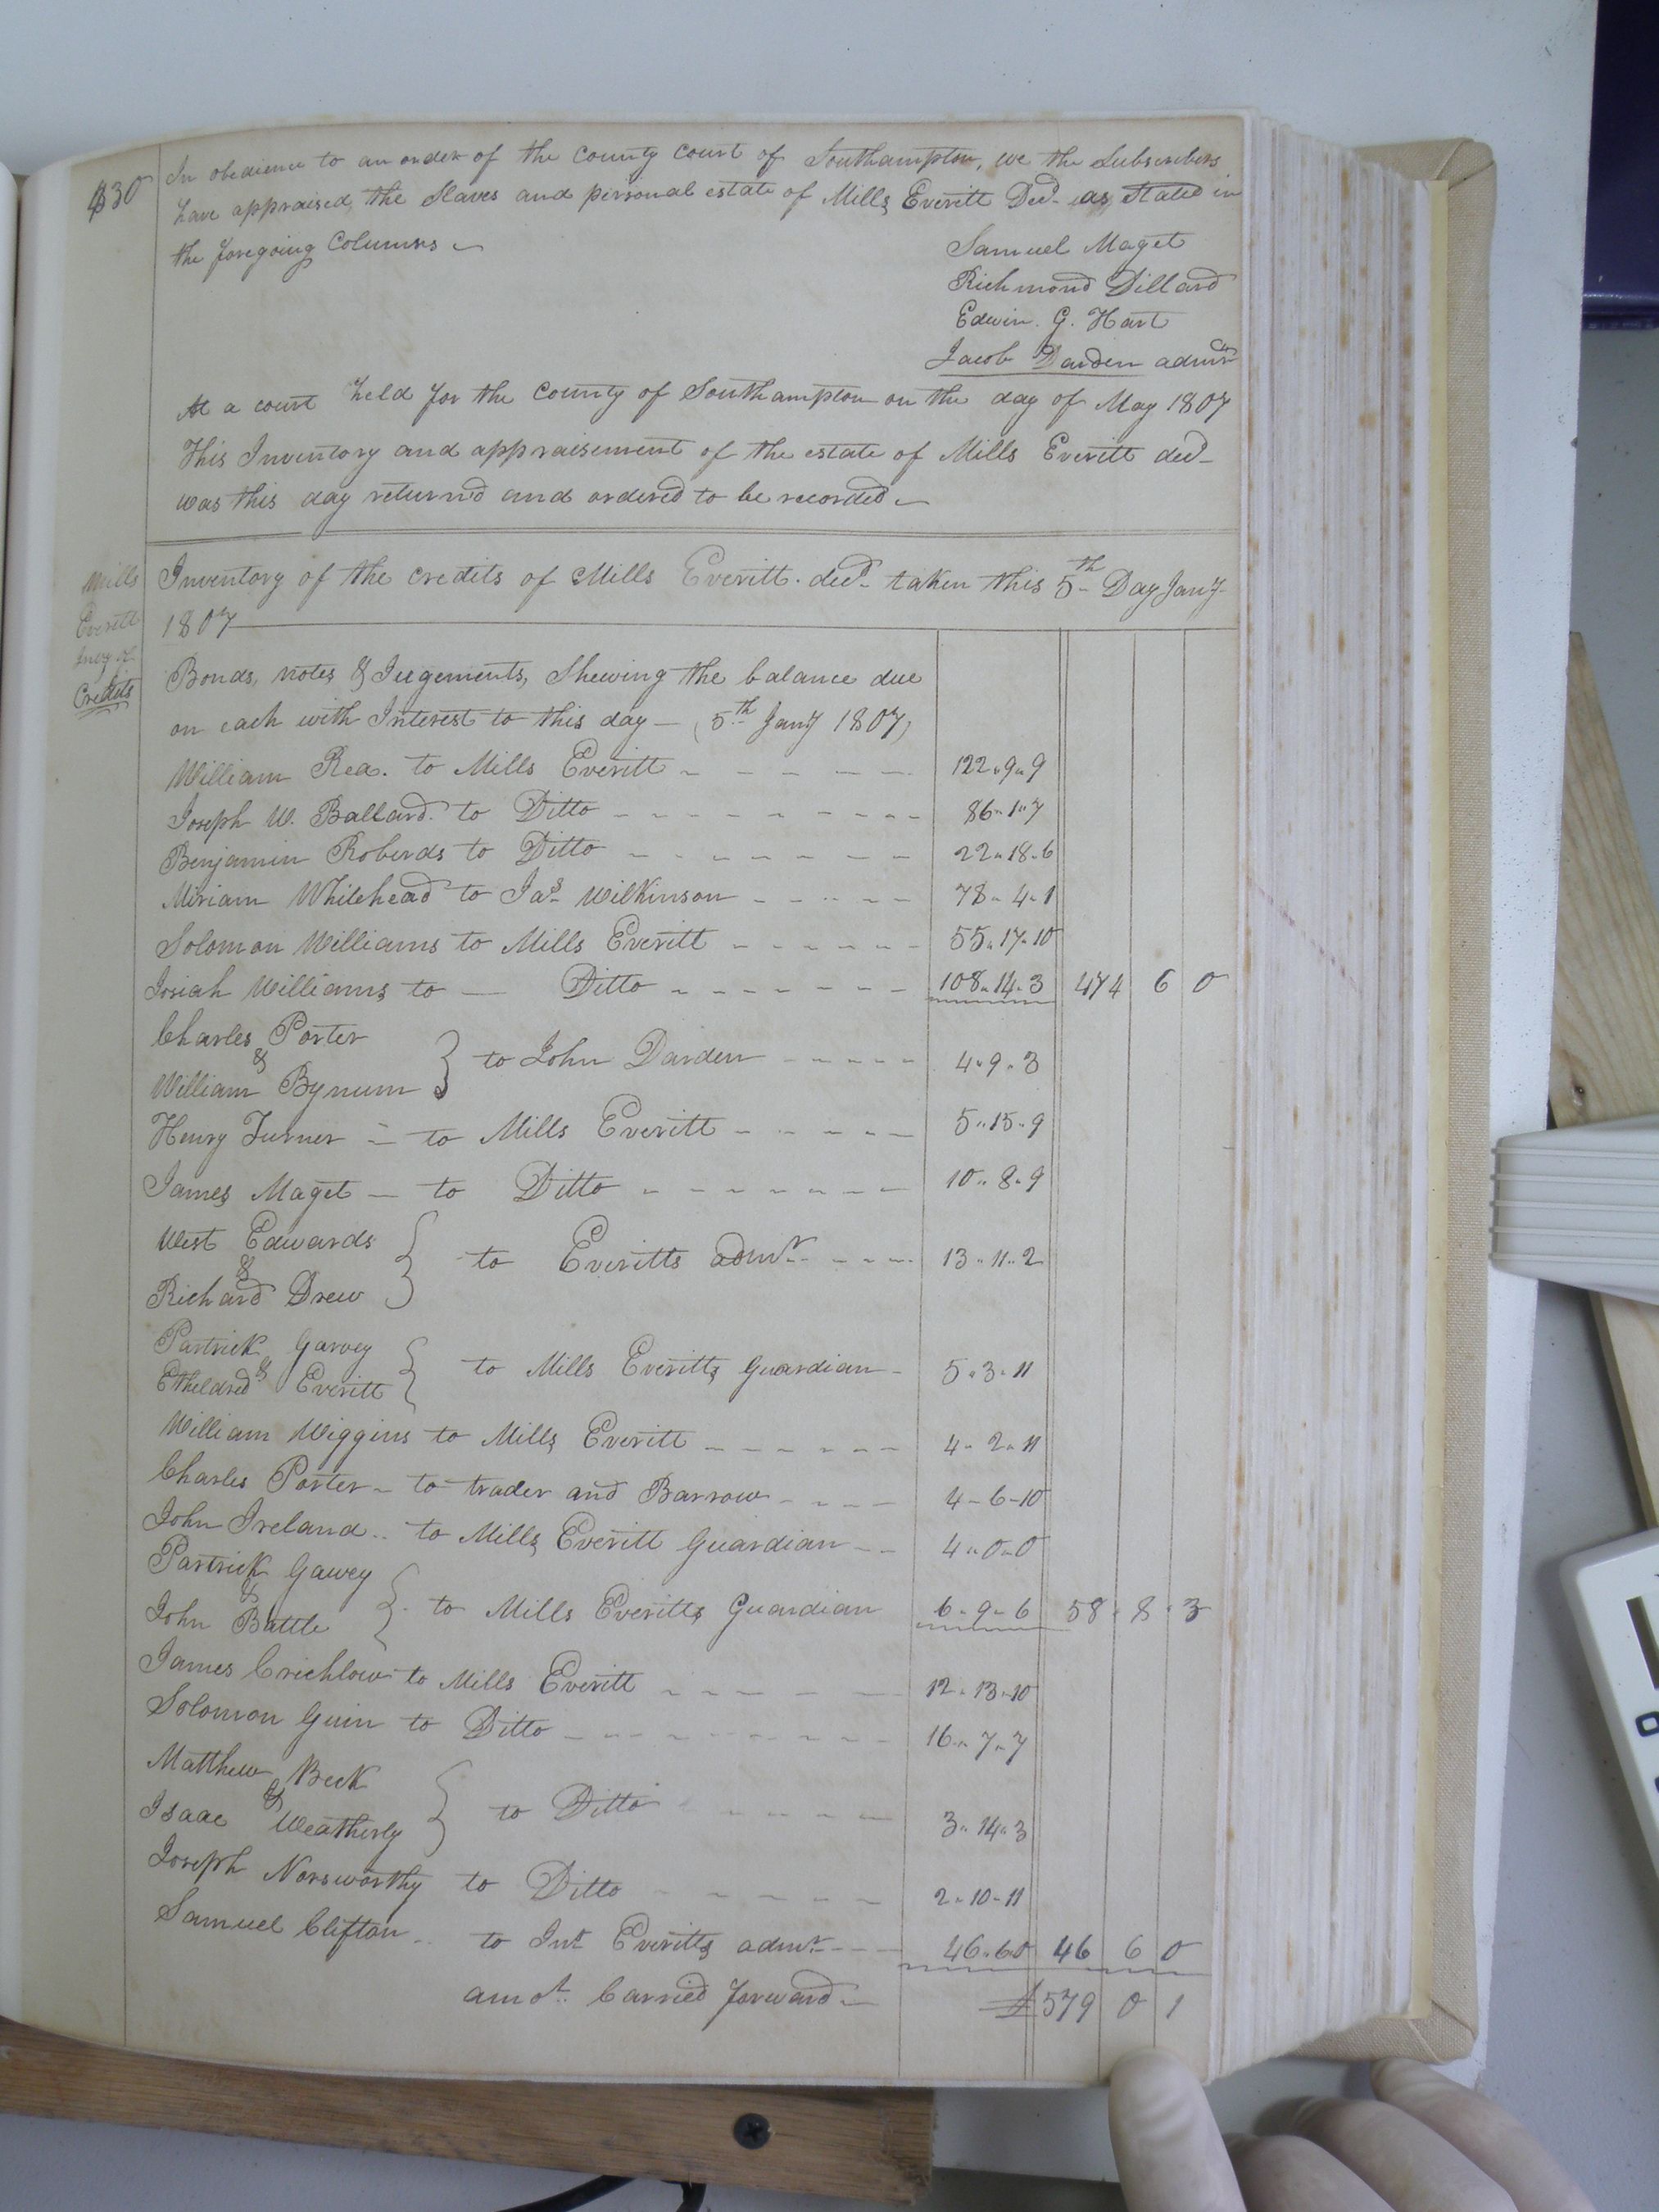 430
In obedience to an order of the County Court of Southampton, we the Subscribers
have appraised, the Slaves and personal estate of Mills Everitt Decd. as Stated in
the foregoing Columns
Samuel Maget
Richmond Dillard
Edwin. G. Hart
Jacob Darden admr
At a court held for the County of Southampton on the day of May 1807
This Inventory and appraisement of the estate of Mills Everitt decd
was this day returnd and ordered to be recorded
Mills
Everitt
Invy of
Credits
Inventory of the credits of Mills Everitt. decd. taken this 5th Day Jany
1807
Bonds, notes & Jugements, Shewing the balance due
on each with Interest to this day – (5th Jany 1807)
William Rea. to Mills Everitt 122.9.9
Joseph W. Ballard. to Ditto 86.1.7
Benjamin Roberds to Ditto 22.18.6
Miriam Whitehead to Jas. Wilkinson 78.4.1
Solomon Williams to Mills Everitt 55.17.10
Josiah Williams to Ditto 108.14.3 474 6 0
Charles Porter
&
William Bynum } to John Darden 4.9.3
Henry Turner to Mills Everitt 5.15.9
James Maget to Ditto 10.8.9
West Edwards
&
Richard Drew } to Everitts admr. 13.11.2
Partrick Garvey
& Etheldred Everitt } to Mills Everitts Guardian 5.3.11
William Wiggins to Mills Everitt 4.2.11
Charles Porter to trader and Barrow 4-6-10
John Ireland.. to Mills Everitt Guardian 4.0.0
Partrick Gawey
&
John Battle } to Mills Everitts Guardian 6.9.6 58.8.3
James Crichlow to Mills Everitt 12.13.10
Solomon Guin to Ditto 16.7.7
Matthew Beck
&
Isaac Weatherly } to Ditto 3.14.3
Joseph Norsworthy to Ditto 2.10.11
Samuel Clifton to Everitts admr 46.6.0 46 6 0
amot. Carried forward £579 0 1